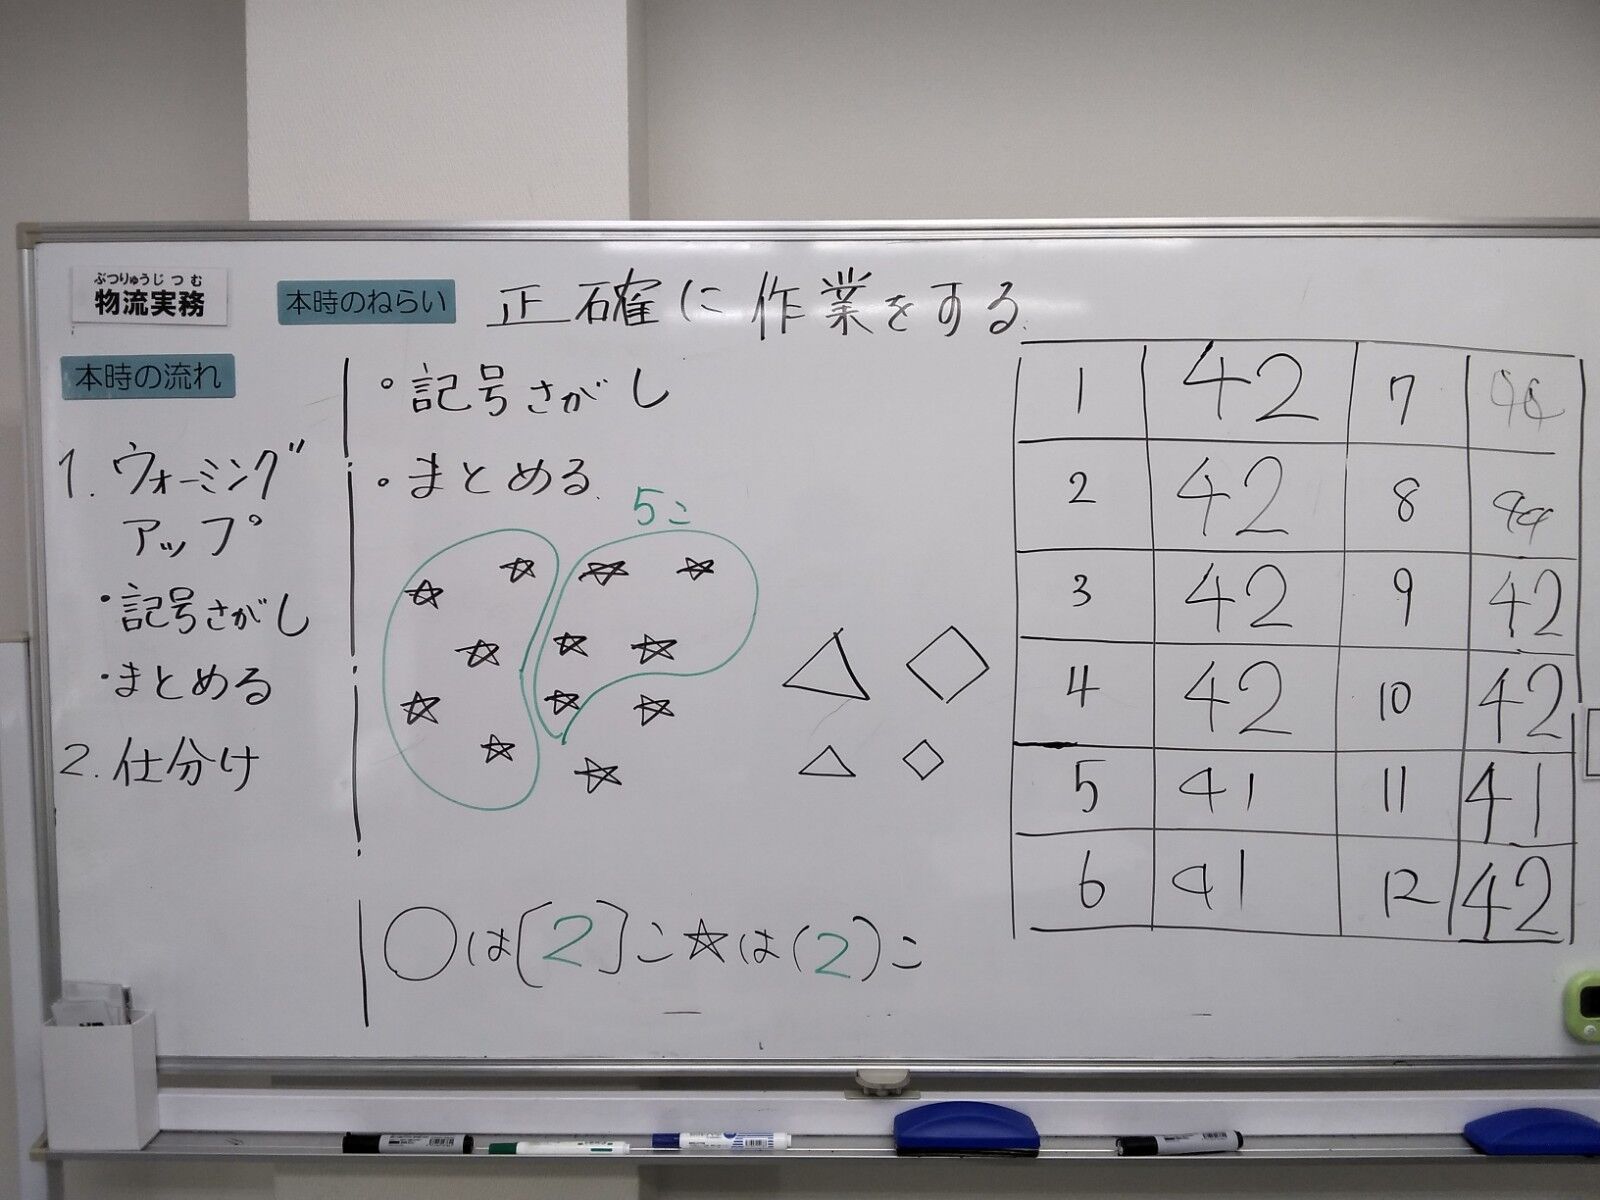 ぶつりゅうじつむ
物流実務
本時のねらい 正確に作業をする.
本時の流れ
1. ウォーミング
アップ
・記号さがし
・まとめる
2. 仕分け
・記号さがし
・まとめる.
5こ
○は[2]こ☆は(2)こ
1 42 7
2 42 8
3 42 9 42
4 42 10 42
5 41 11 41
6 41 12 42